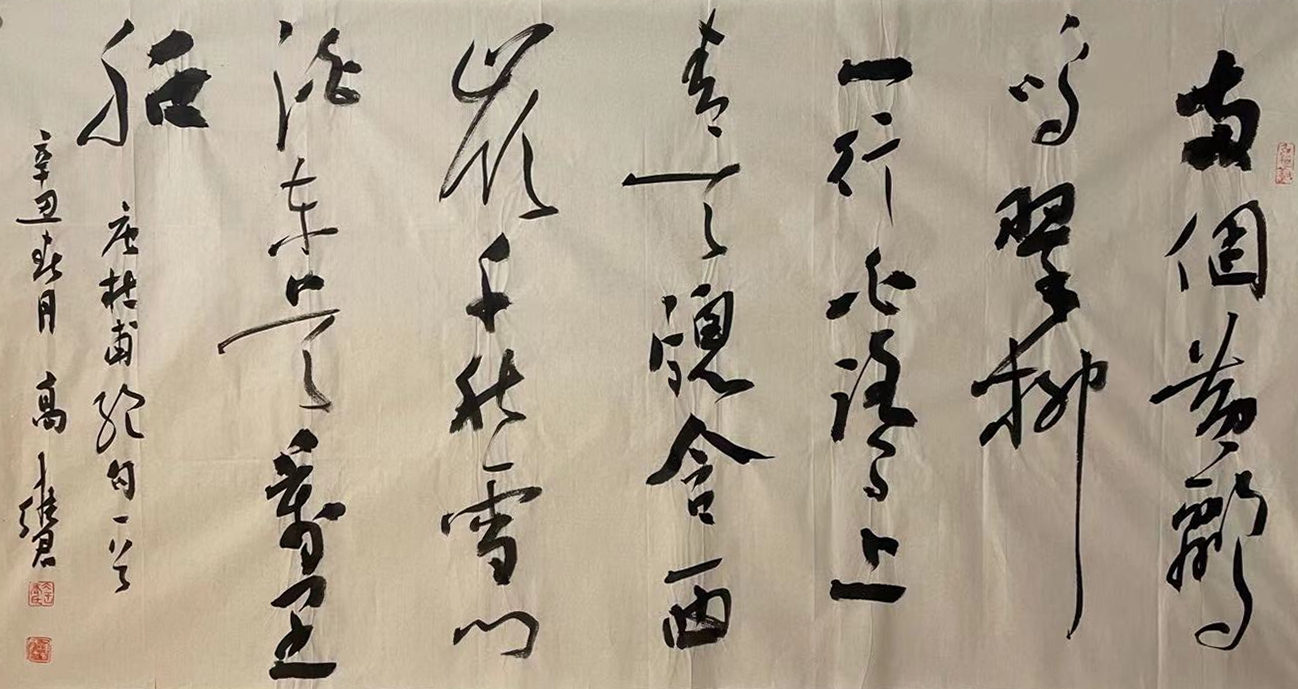 两個黄鸝
鳴翠柳
一行白鷺上
青天牕含西
嶺千秋雪门
泊東吴萬里
船
唐杜甫絶句一首
辛丑春月 高